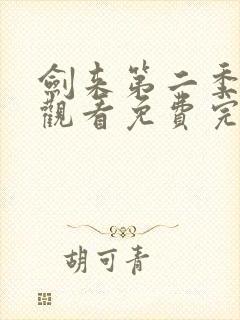 劍来第二季
觀看免費完
胡可青